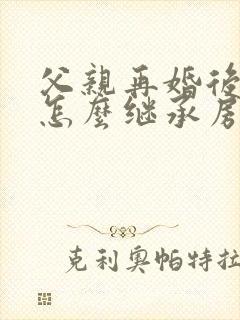 父親再婚後
怎麼继承房
克利奥帕特拉